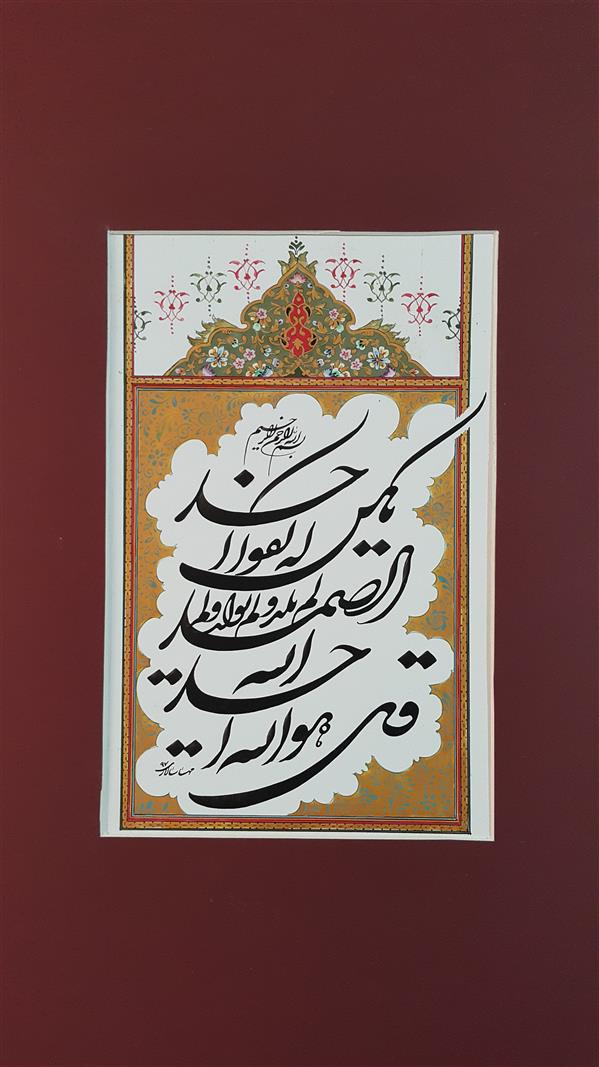 بسم الله الرحمن الرحیم
قل هو الله احد
الله
الصمد لم یلد و لم یولد و لم
یکن له کفوا احد
۹۷